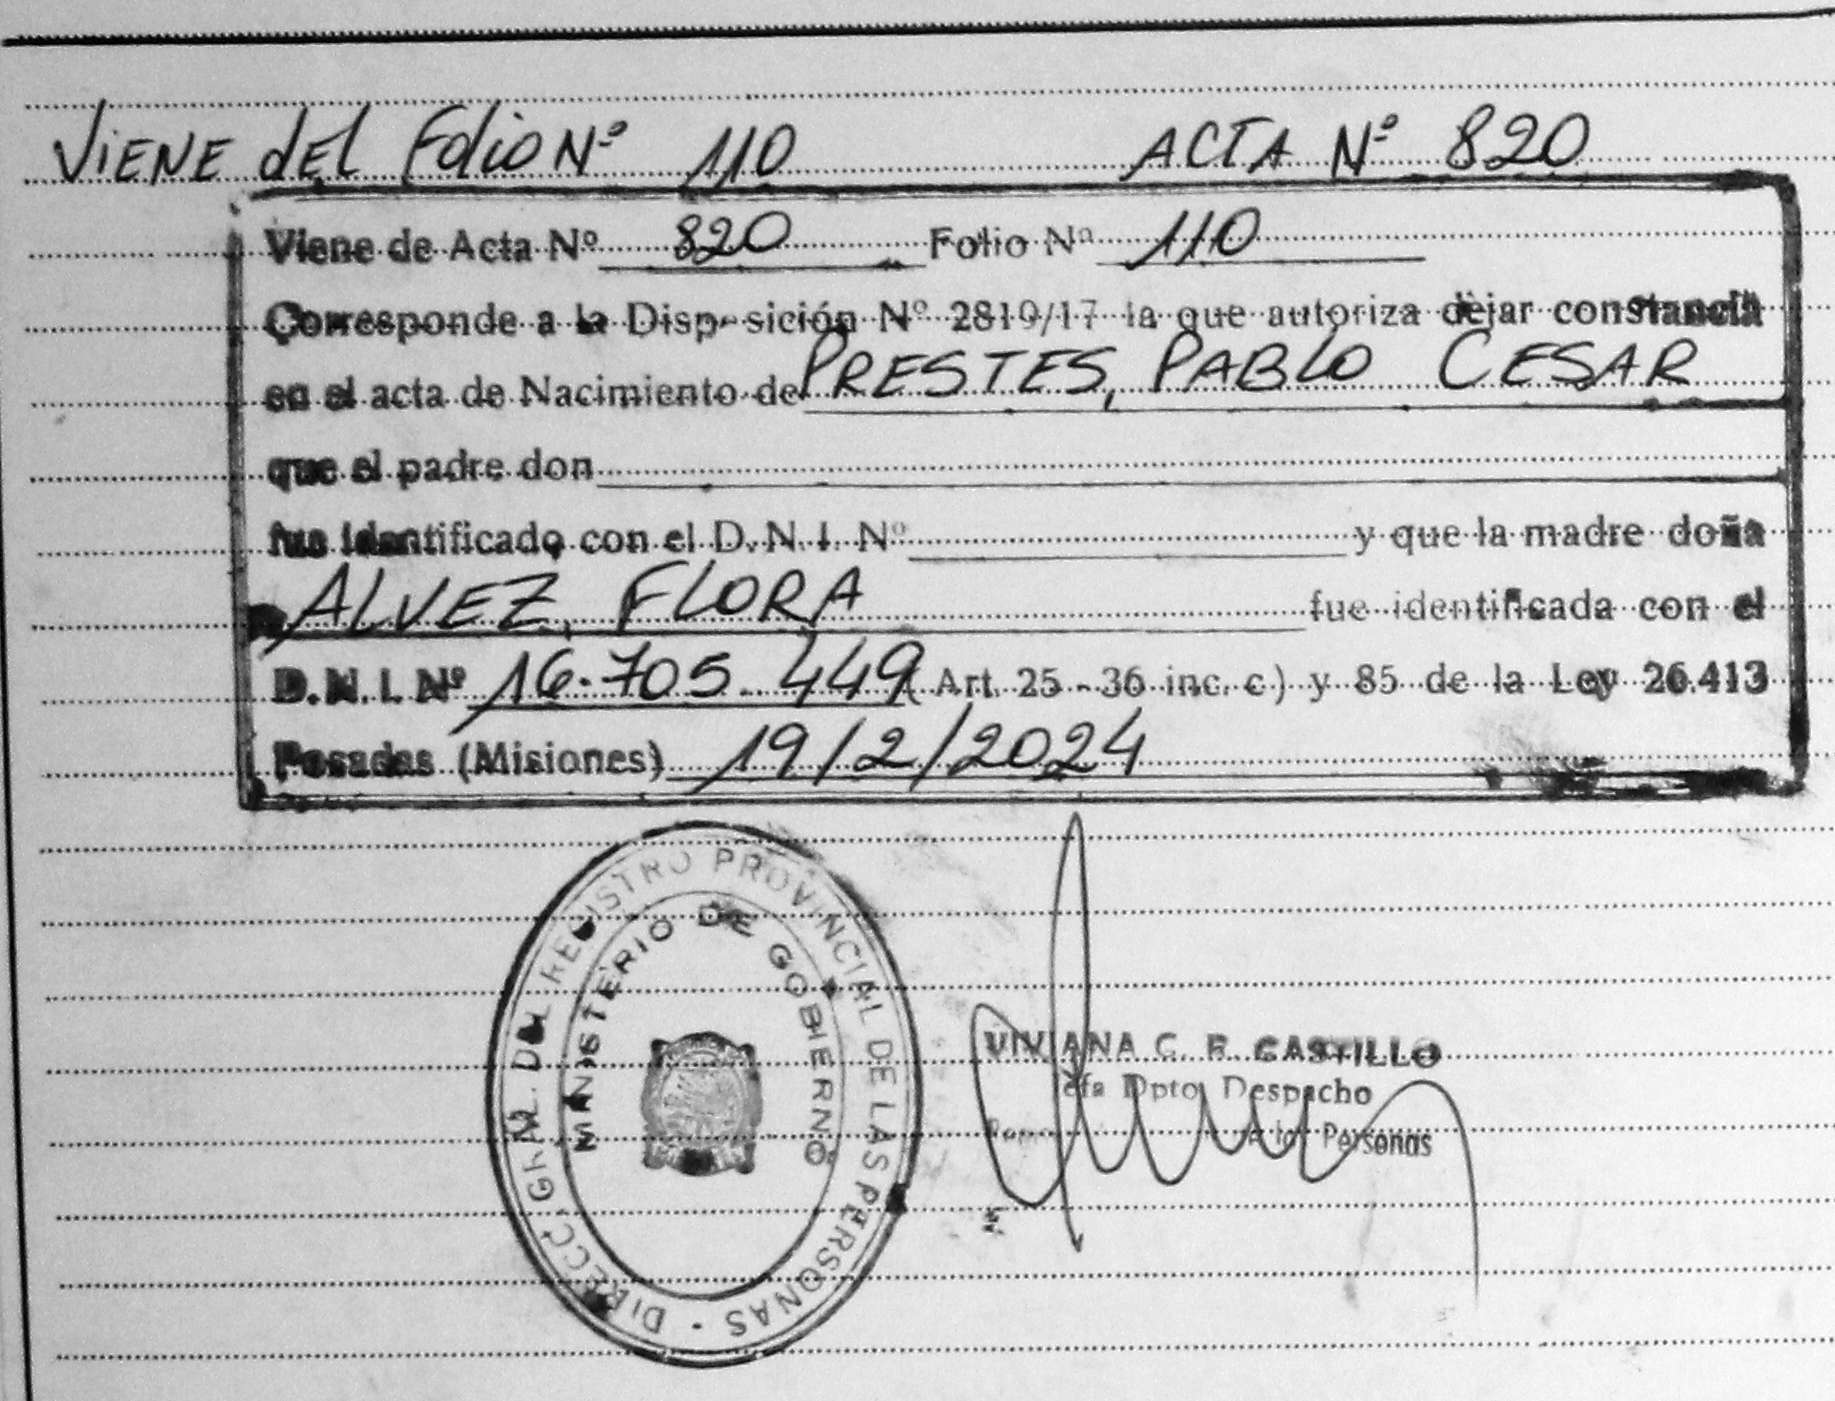 ViENE dEL Folio Nº 110 ACTA Nº 820
Viene de Acta Nº 820 Folio Nº 110
Corresponde a la Disposición Nº 2819/17 la que autoriza dejar constancia
en el acta de Nacimiento de PRESTES, PABLO CESAR
que el padre don
fue identificado con el D.N.I. Nº y que la madre doña
ALVEZ, FLORA fue identificada con el
D.N.I. Nº 16.705.449 (Art. 25 - 36 inc. c) y 85 de la Ley 26.413
Posadas (Misiones) 19/2/2024
DIRECC. GRAL. DEL REGISTRO PROVINCIAL DE LAS PERSONAS
MINISTERIO DE GOBIERNO
VIVIANA C. CASTILLO
Jefa Dpto Despacho
Personas